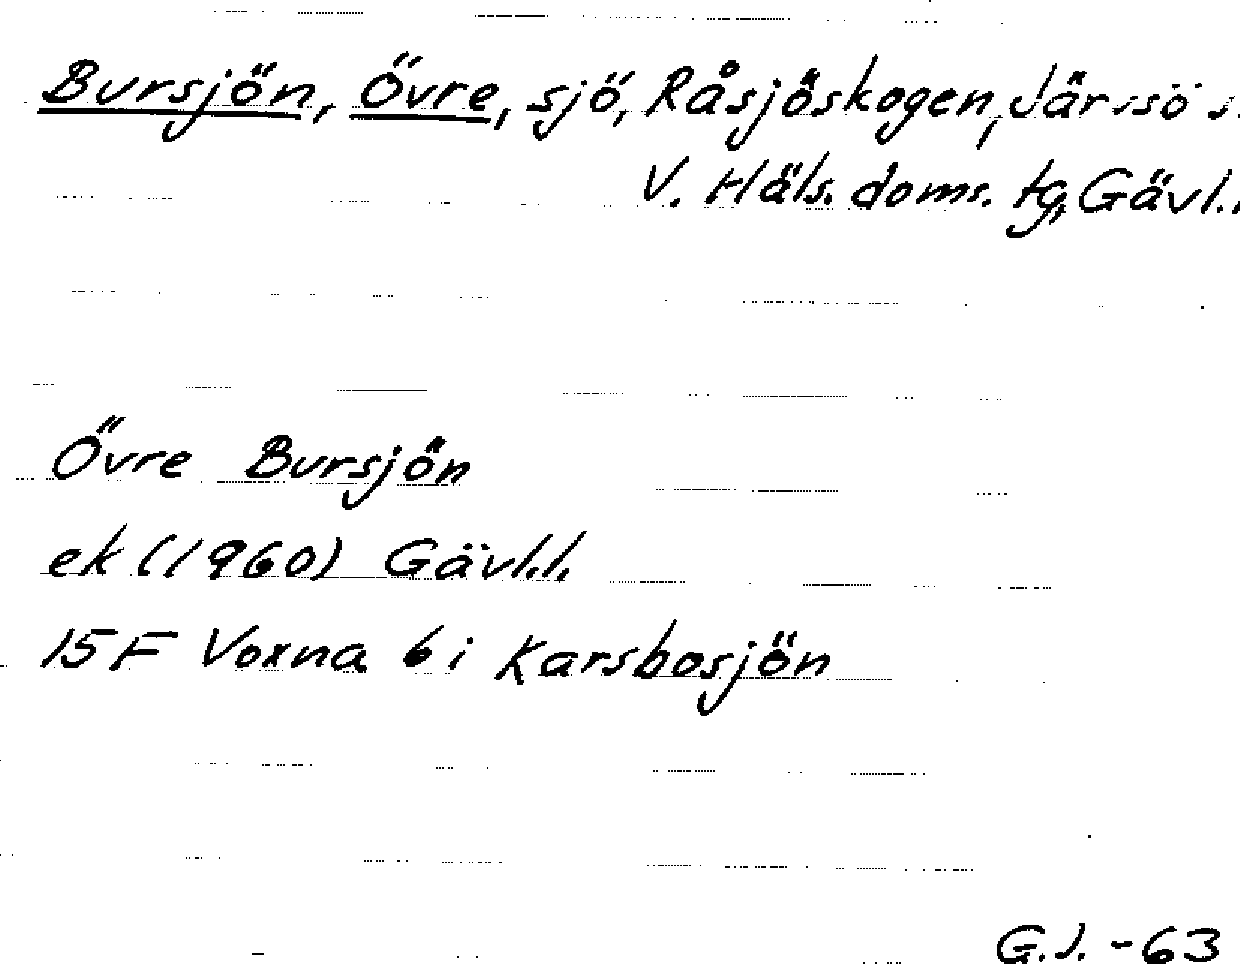 Bursjön, Övre, sjö, Råsjöskogen, Järvsö s.
V. Häls. doms. tg, Gävl.l.
Övre Bursjön
ek (1960) Gävl.l.
15F Voxna 6i Karsbosjön
G.J. -63